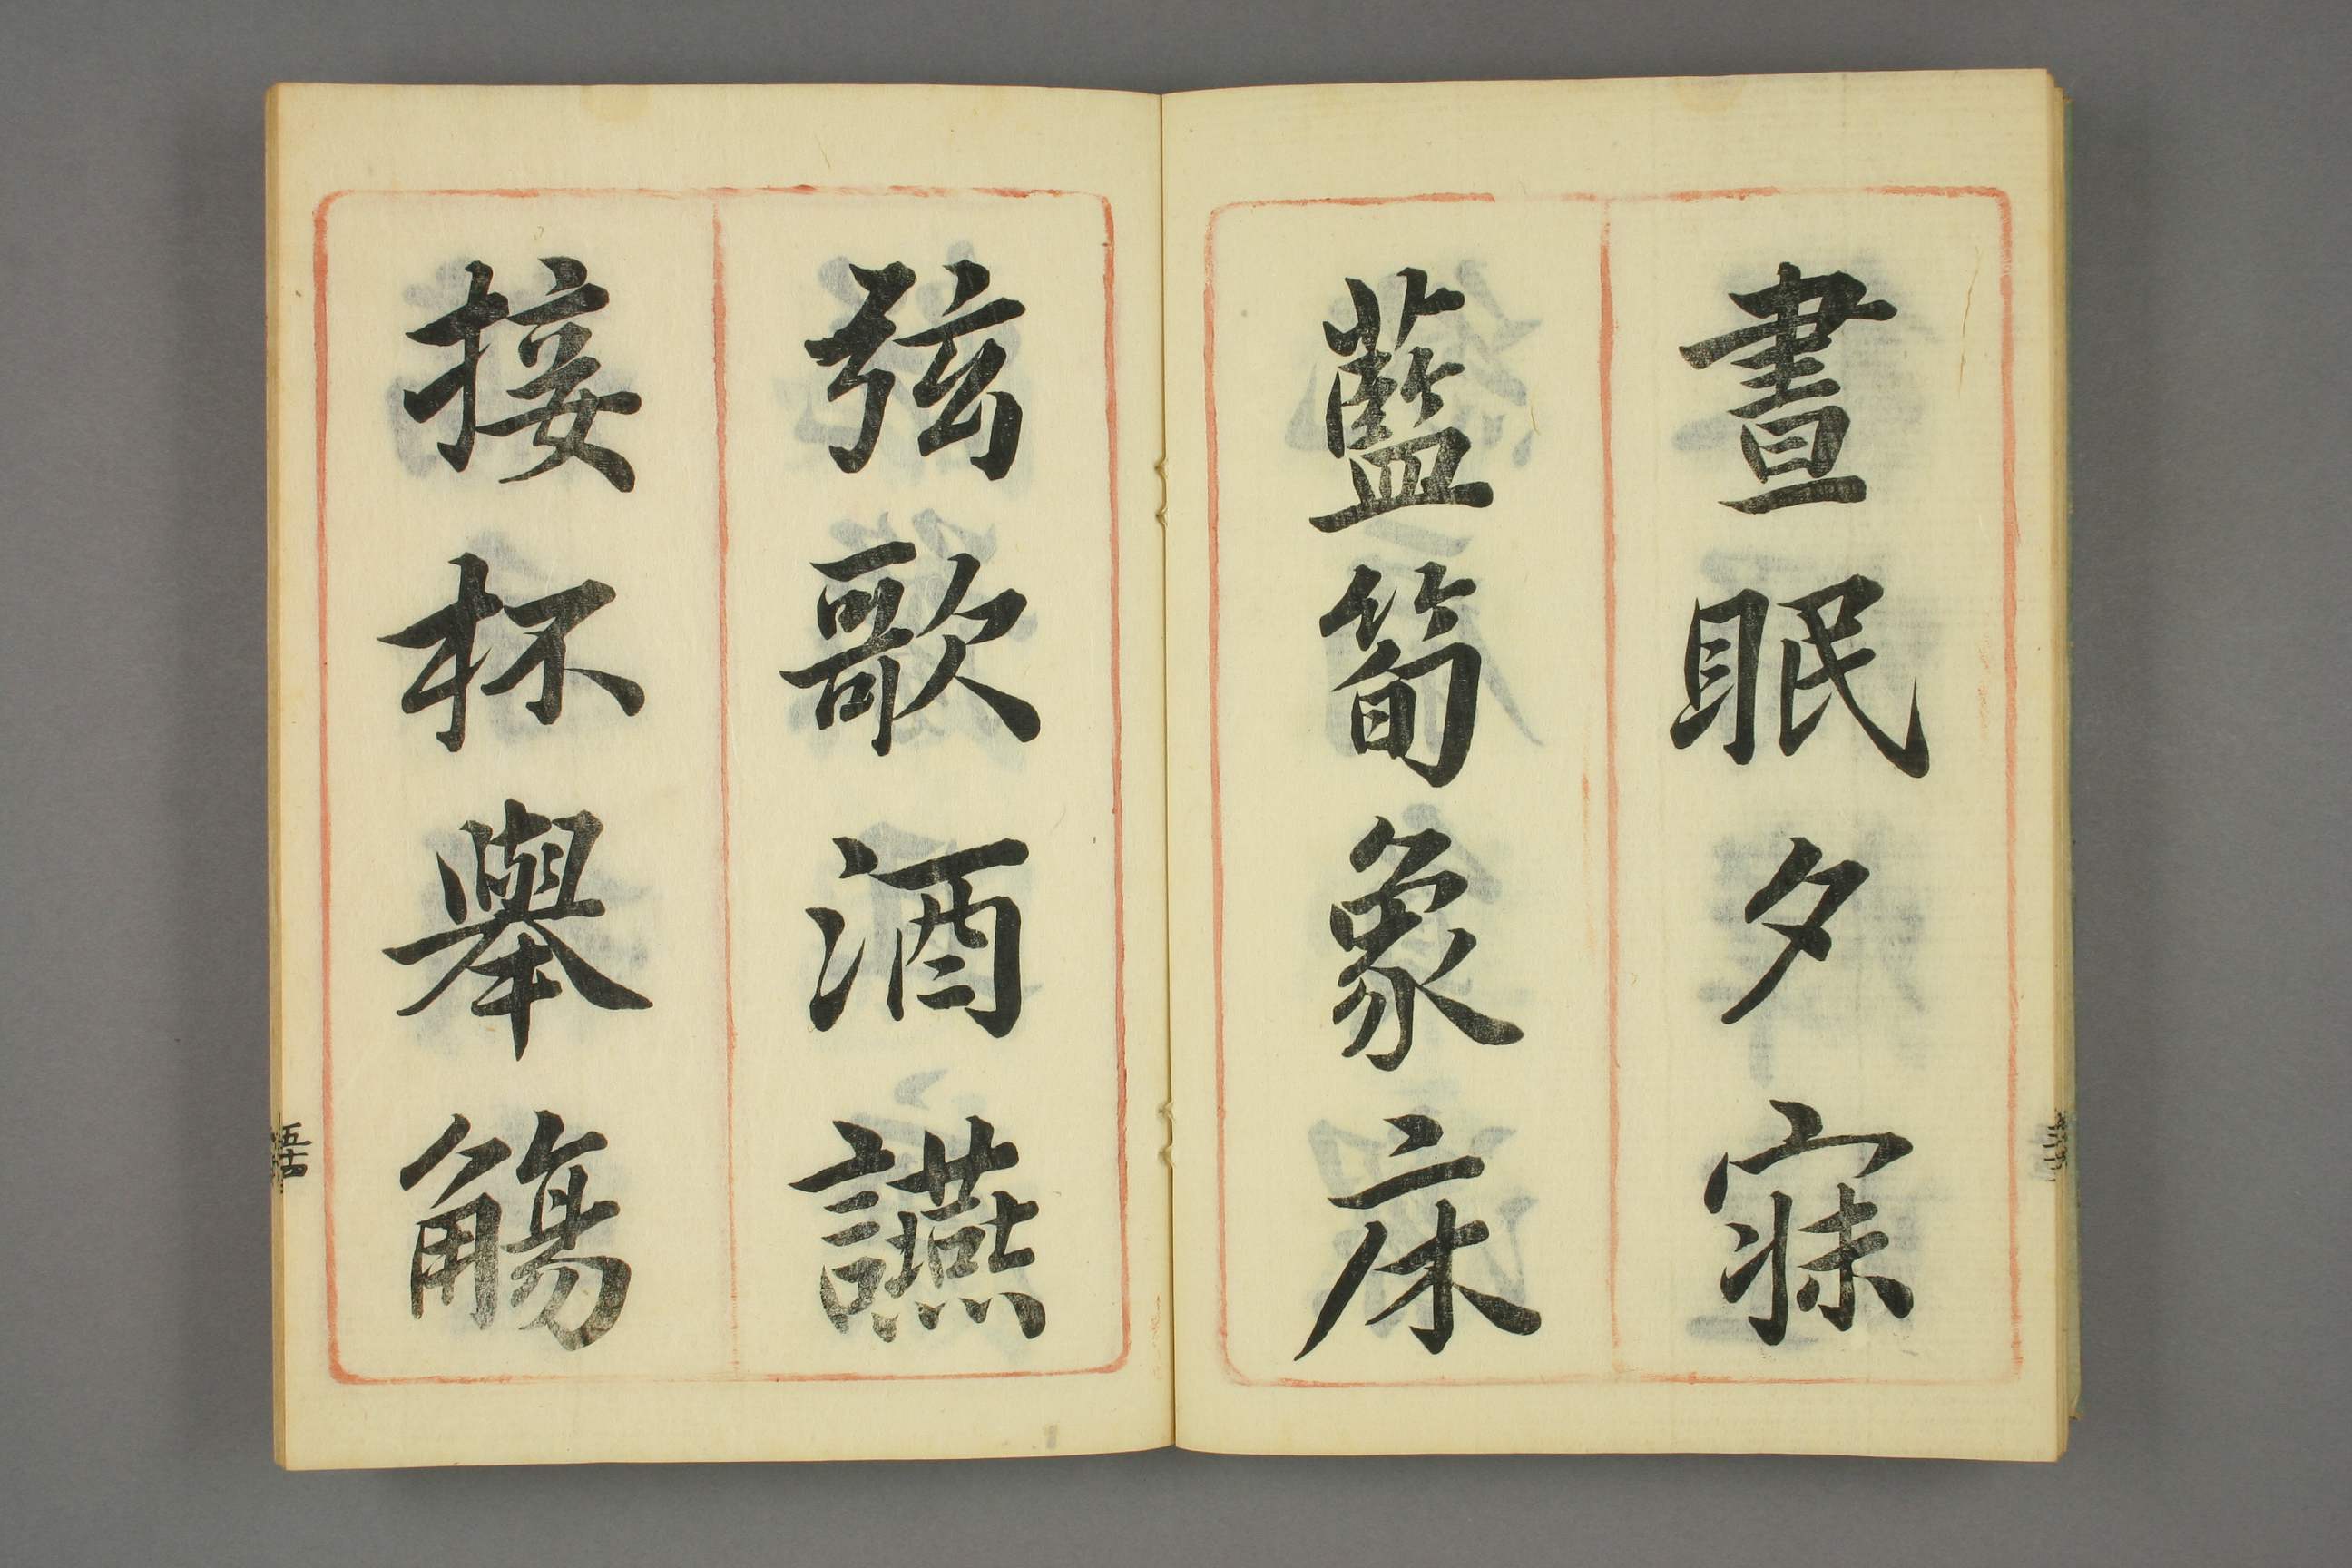 晝眠夕寐
藍筍象床
弦歌酒讌
接杯舉觴
五十四